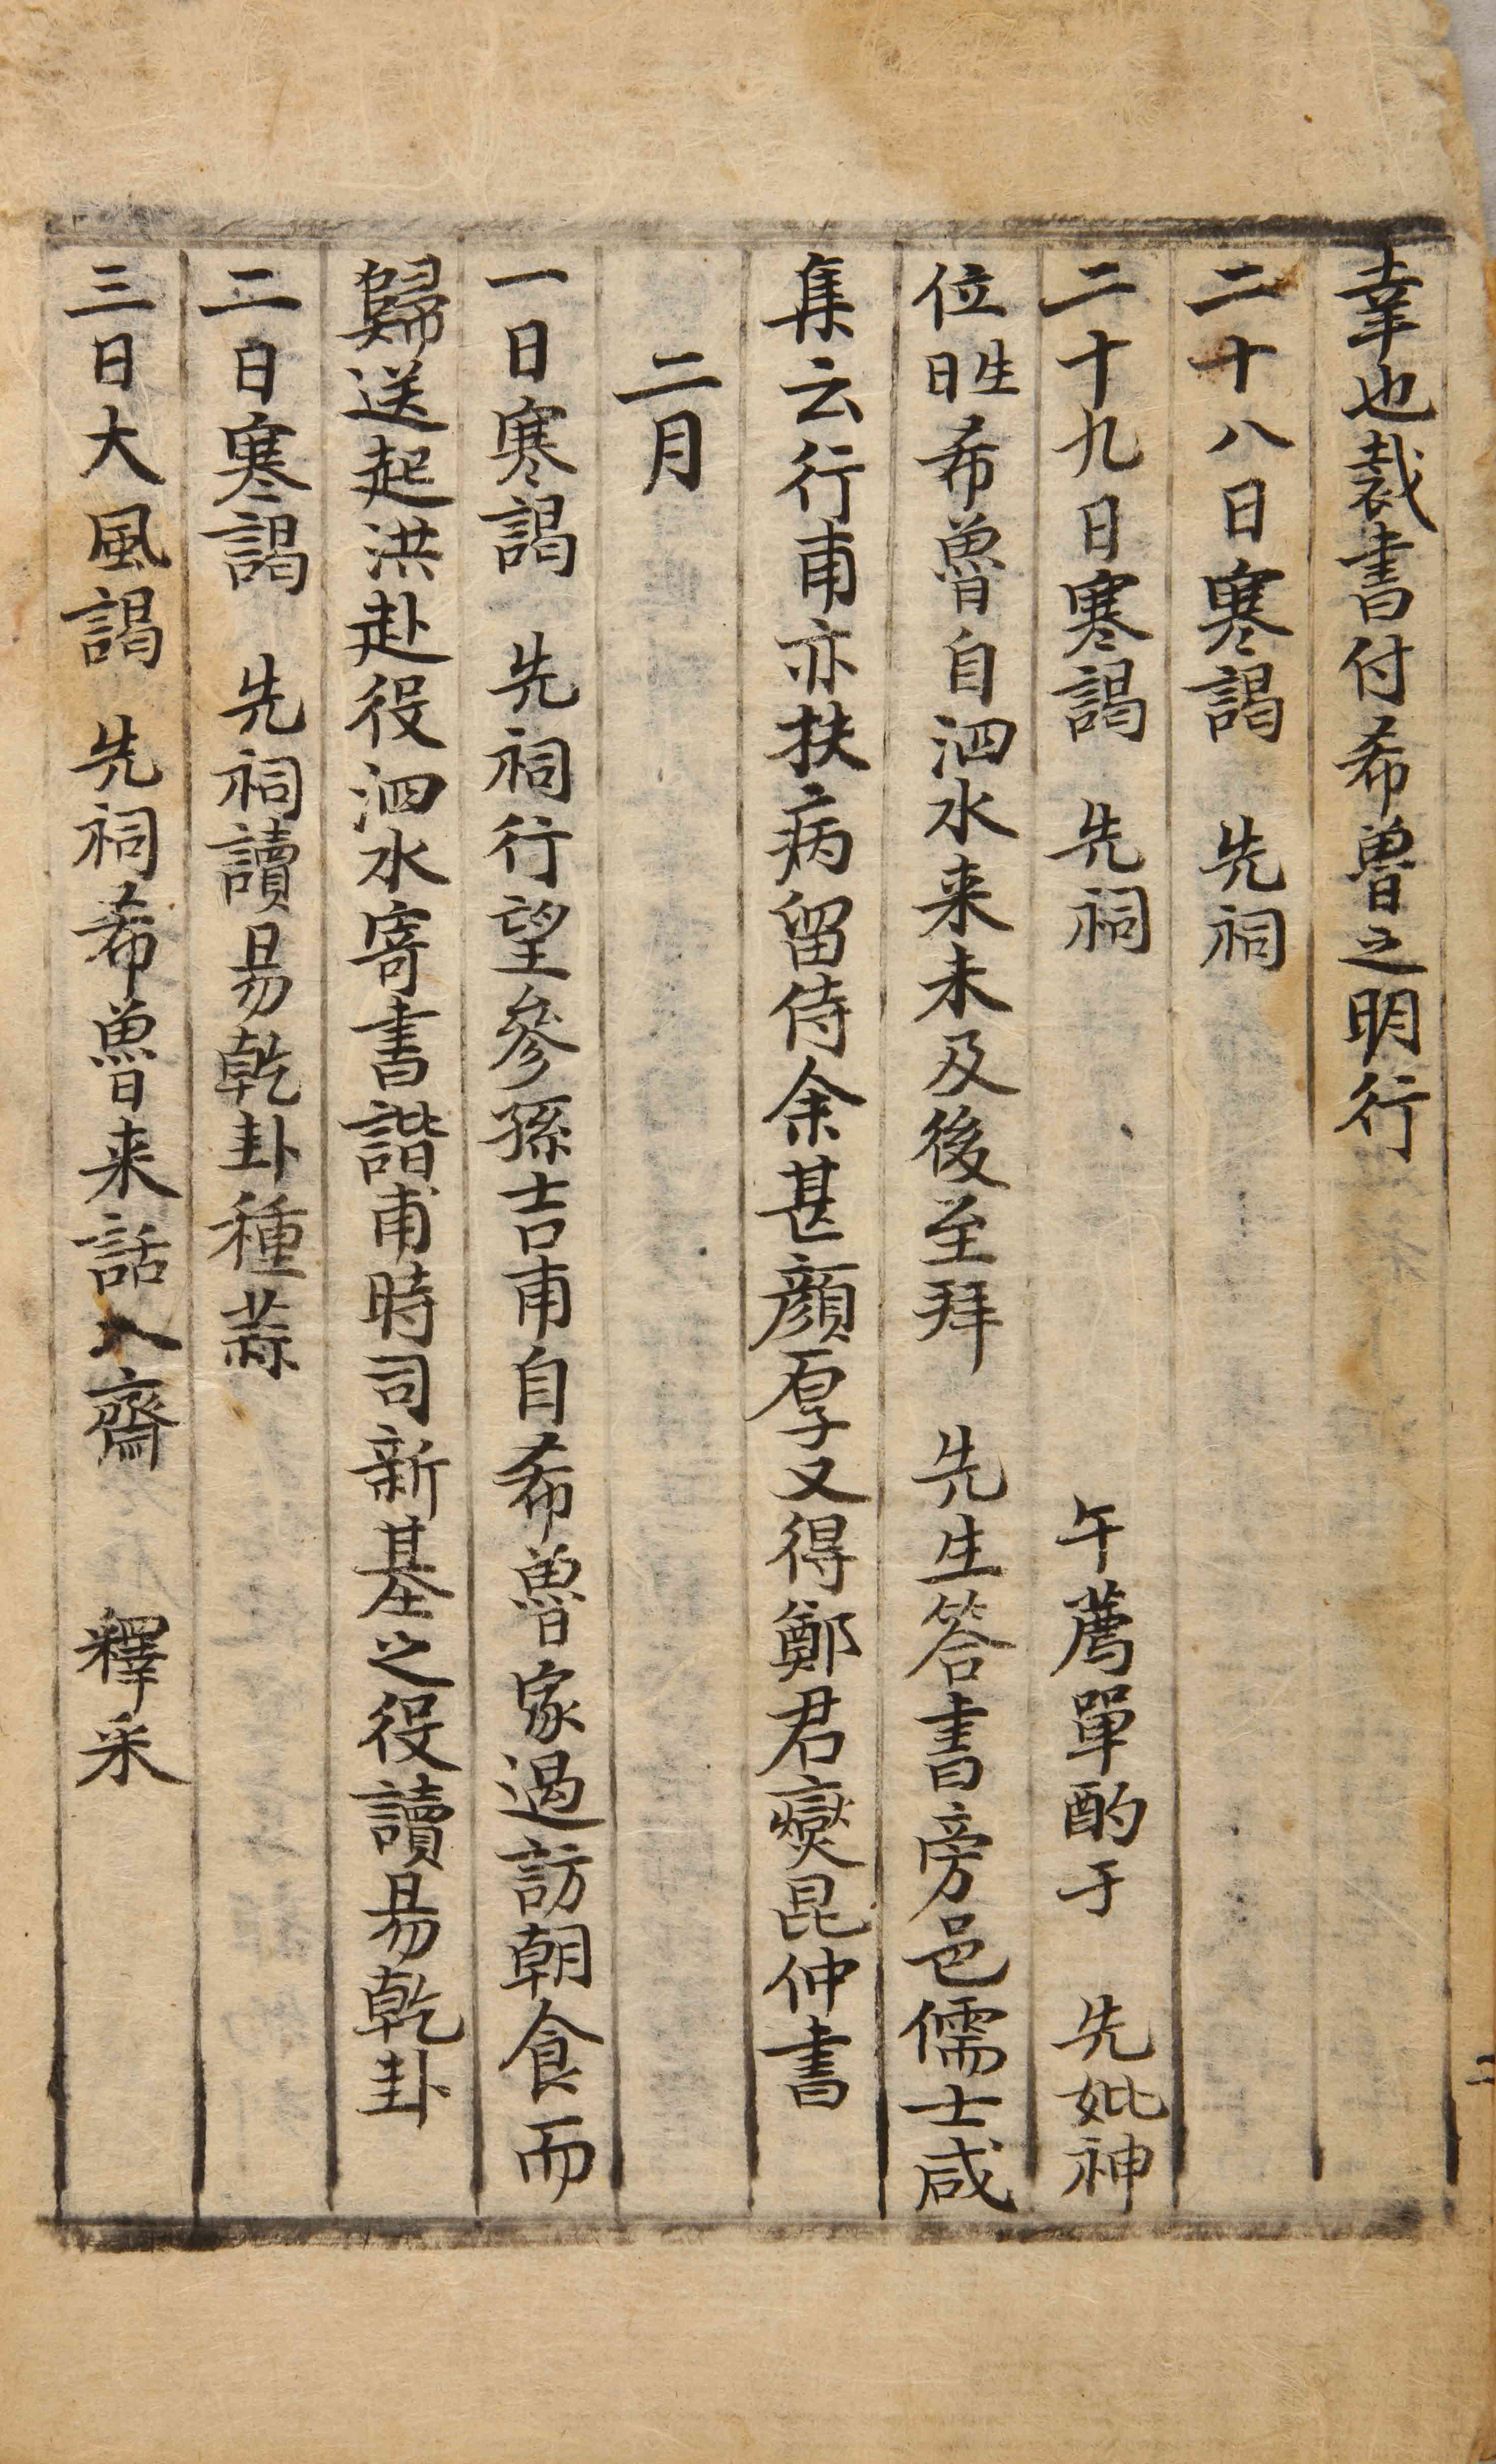 幸也裁書付希魯之明行
二十八日寒謁　先祠
二十九日寒謁　先祠　午薦單酌于　先妣神
位生日希魯自泗水来未及後至拜　先生答書旁邑儒士咸
集云行甫亦扶病留侍余甚顔厚又得鄭君燮昆仲書
二月
一日寒謁　先祠行望參孫吉甫自希魯家過訪朝食而
歸送起洪赴役泗水寄書諧甫時司新基之役讀易乾卦
二日寒謁　先祠讀易乾卦種蒜
三日大風謁　先祠希魯来話入齋　釋采